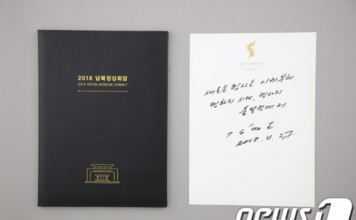 2018 남북정상회담
2018 INTER-KOREAN SUMMIT
새로운 력사는 이제부터
평화의 시대, 력사의
출발점에서
김정은
2018. 4. 27
NEWS1